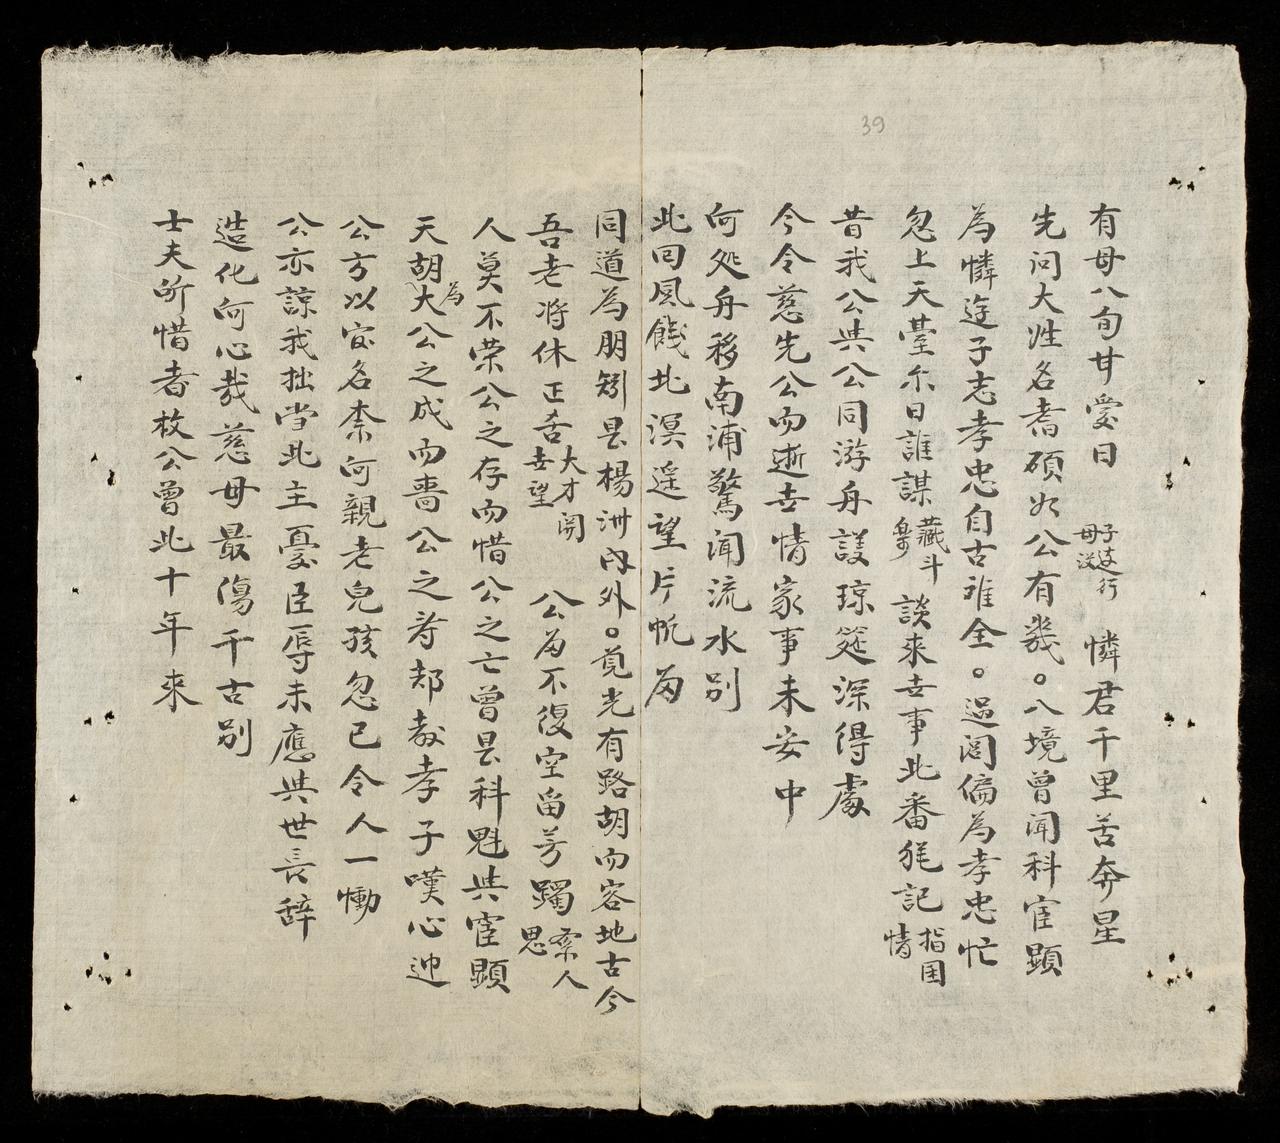 39
有母八旬甘愛日 子望行母没 憐君千里苦奔星
先问大姓名耆碩如公有幾。八境曾闻科宦顯
為憐廷子志孝忠自古谁全。過閭偏為孝忠忙
忽上天臺尔日誰謀 藏斗 談來世事北番犹記 指囷情
昔我公共公同游舟護琼筵深得處
今令慈先公而逝世情家事未安中
何処舟移南浦驚闻流水别
此回风餞北溟遥望片帆為
同道為朋矧是楊洲内外。覓光有路胡而容地古今
吾老将休正吝 大才開世望 公為不復空留芳躅 索人思
人莫不荣公之存而惜公之亡曾是科魁共宦顯
天胡為大公之成而嗇公之寿却教孝子嘆心迎
公方以宦名柰何親老兒孩忽已令人一慟
公亦諒我拙当此主憂臣辱未應共世長辞
造化何心哉慈母最傷千古别
士夫所惜者枚公曾此十年來